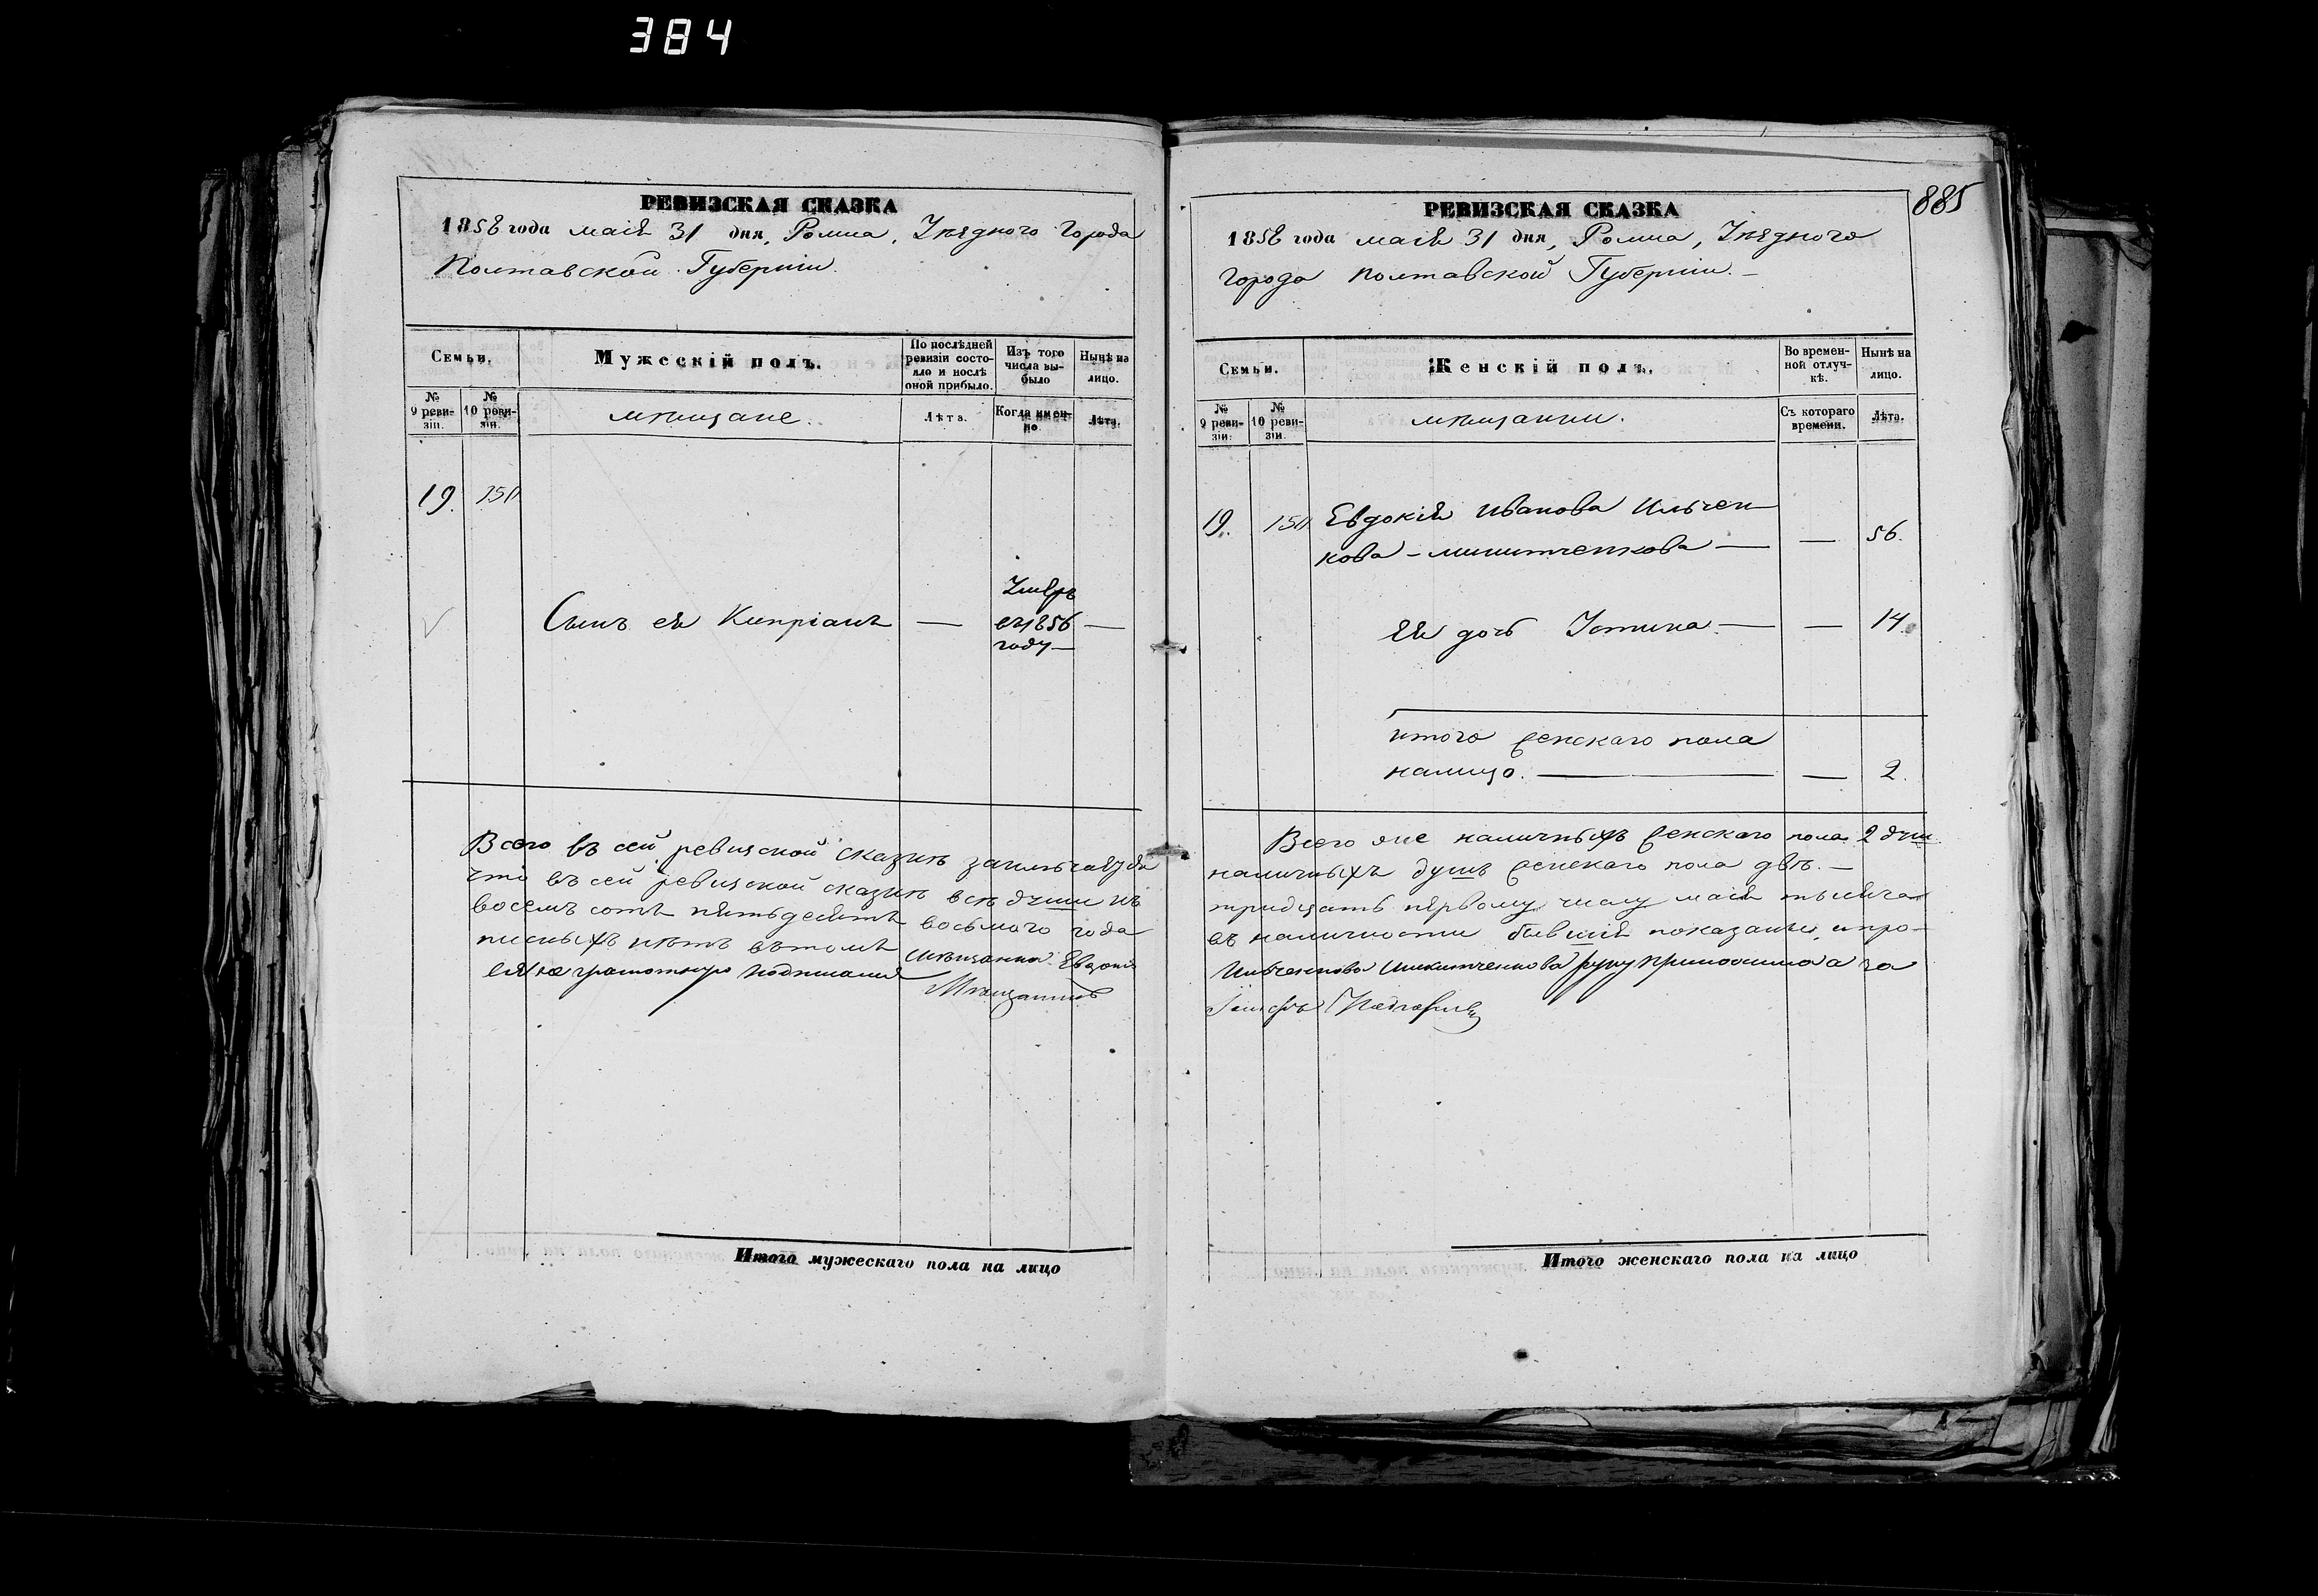 384
РЕВИЗСКАЯ СКАЗКА
1858 года маія 31 дня, Ромна, Уѣзднаго Города
Полтавской Губерніи.
Семьи.
Мужескій полъ.
По послѣдней ревизіи состояло и послѣ оной прибыло.
Изъ того числа выбыло
Нынѣ на лицо.
№ 9 ревизіи.
№ 10 ревизіи.
мѣщане.
Лѣта.
Когда именно.
Лѣта.
19.
Умеръ
Сынъ ея Кипріанъ — въ 1856 —
году —
Всего въ сей ревизской сказкѣ заключается
что въ сей ревизской сказкѣ всѣ души къ
восемь сотъ пятьдесятъ восьмого года
писныхъ нѣтъ въ томъ мѣщанка Евдокія
неграмотную подписался
Мѣщанинъ
Итого мужескаго пола на лицо
885
РЕВИЗСКАЯ СКАЗКА
1858 года маія 31 дня, Ромна, Уѣзднаго
Города Полтавской Губерніи. —
Семьи.
Женскій полъ.
Во временной отлучкѣ.
Нынѣ на лицо.
№ 9 ревизіи.
№ 10 ревизіи.
мѣщанки.
Съ котораго времени.
Лѣта.
19. Евдокія Иванова Ильчен-
кова — — — 56.
Ея дочь Устина — — 14.
итого женскаго пола
налицо. — — 2.
Всего же наличныхъ женскаго пола 2 душ
наличныхъ душъ женскаго пола двѣ. —
тридцать первому числу маія тысяча
въ наличности бывшія показаны, и про-
Ильченкова руку приложила а за
Итого женскаго пола на лицо